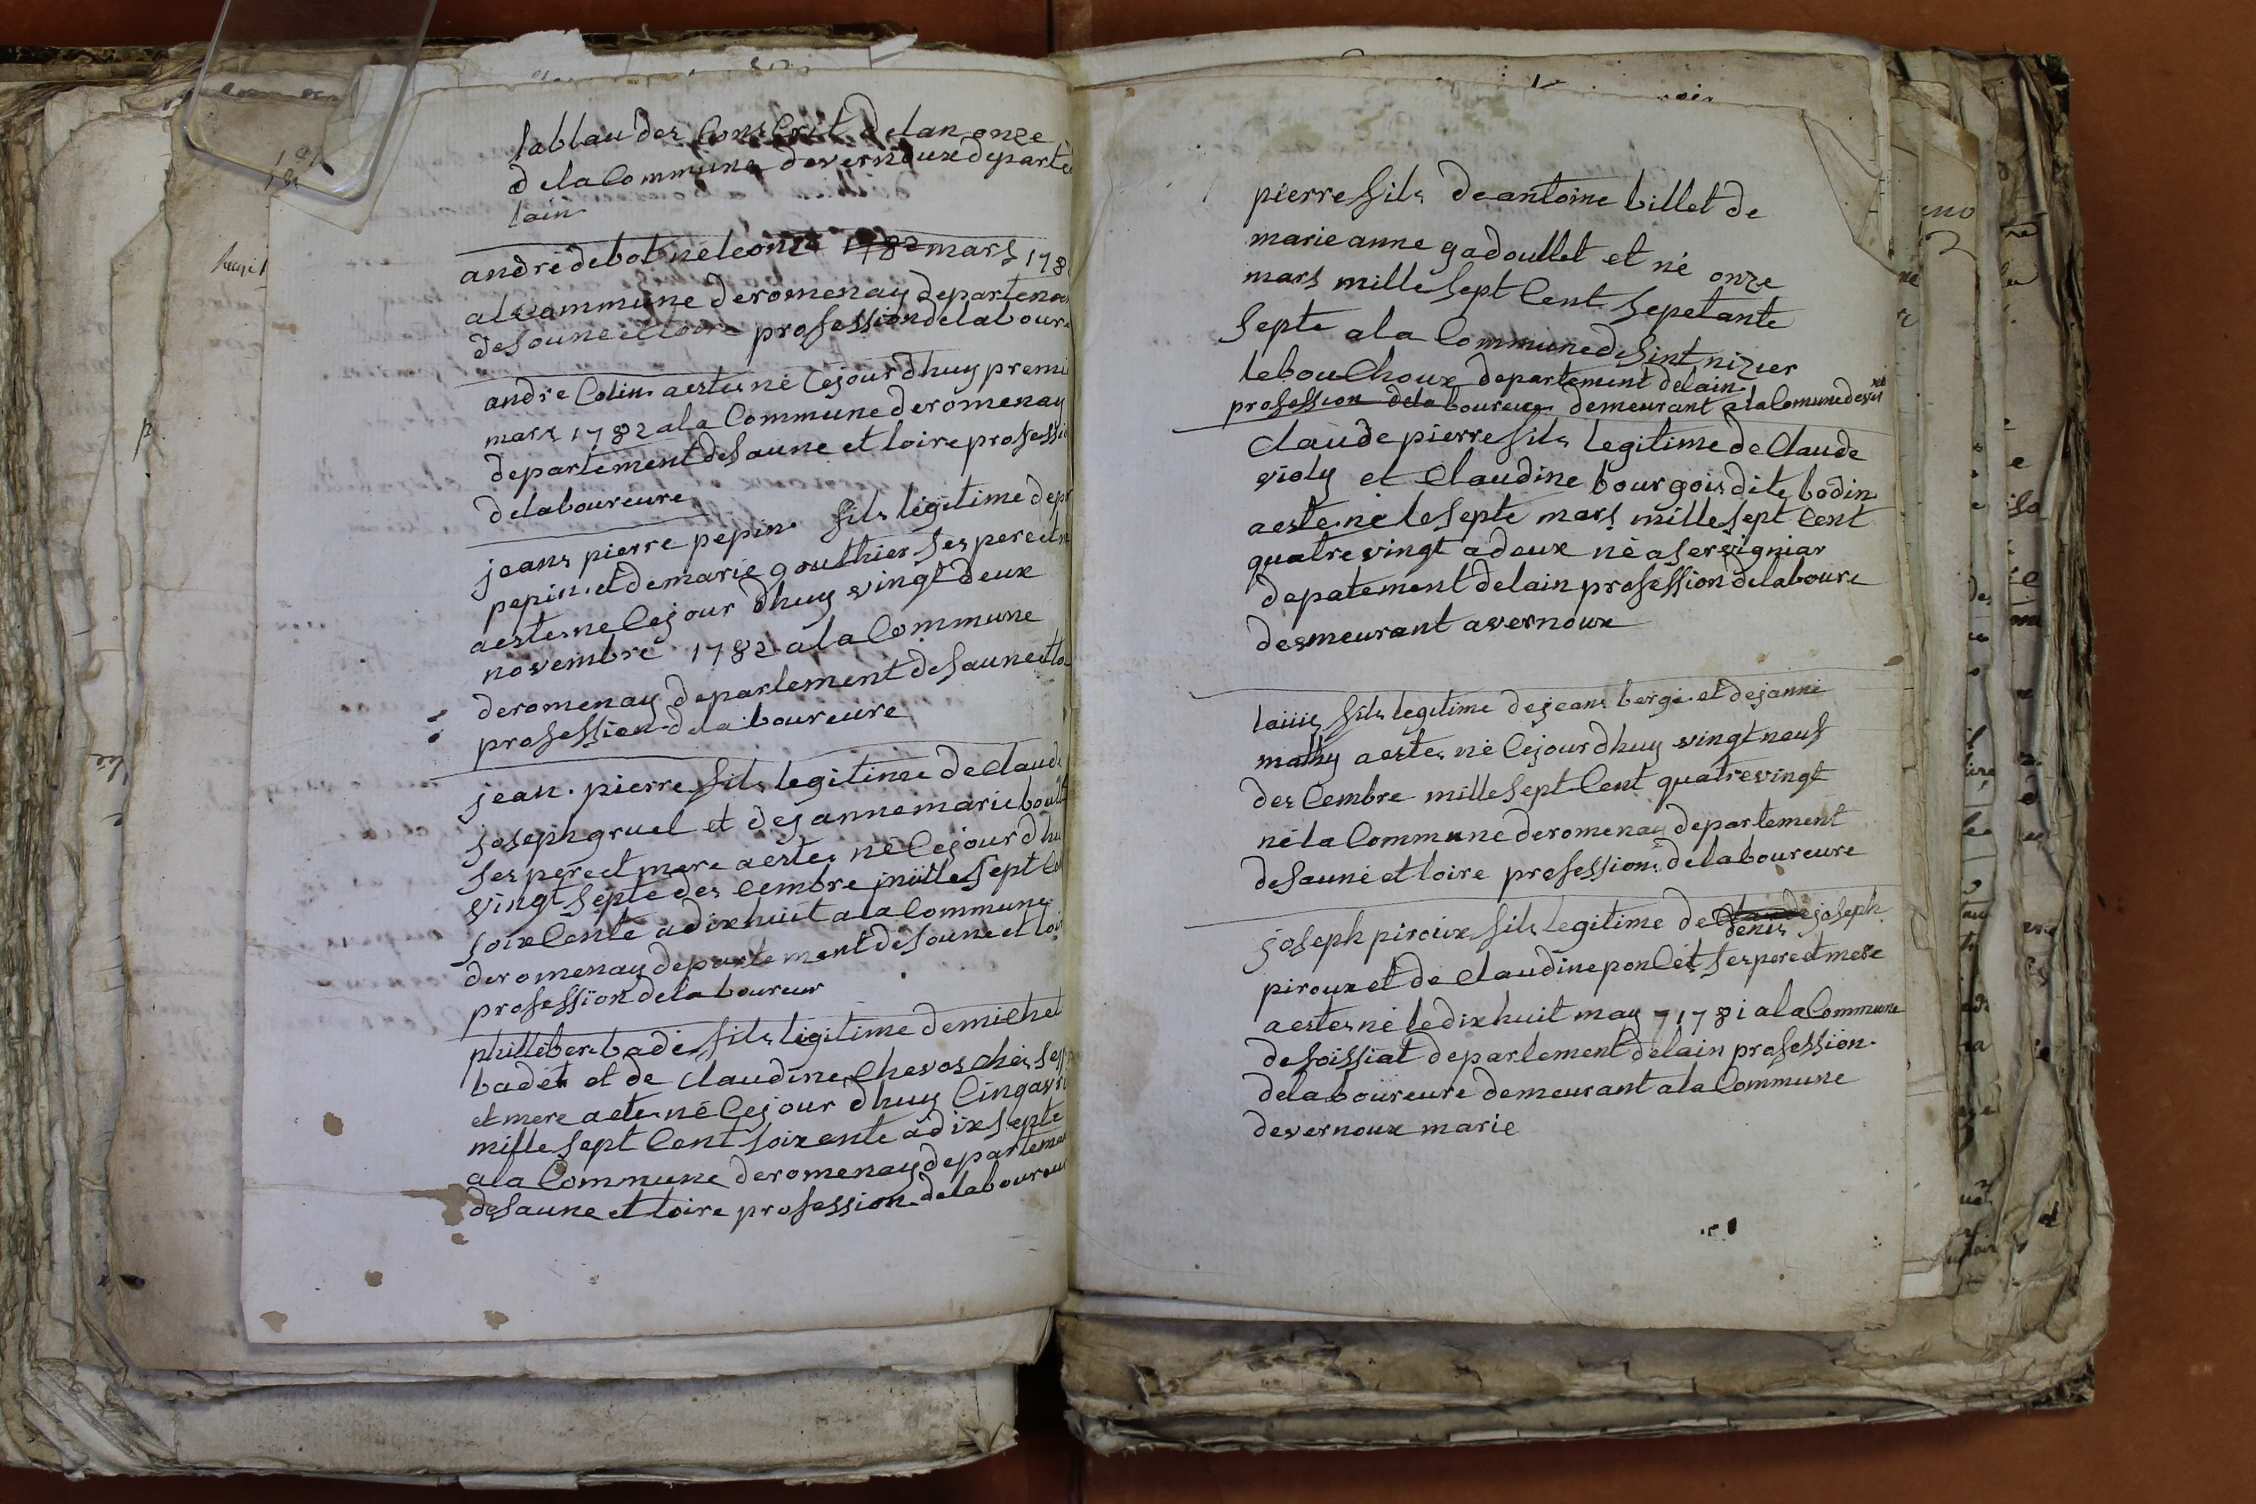 tablau des Conscrit delan onze
dela Commune devernoux departe
lain
andré debot né le onze 1782 mars 178
ala commune deromenay departemen
desoune et loire profession delaboure
andre Colin aestes né Cejour dhuy premi
mars 1782 ala Commune deromenay
departement desaune et loire professio
delaboureure
jeans pierre pepin fils légitime depi
pepin et demarie gouthier ses pere et m
aestes ne Cejour dhuy vingt deux
novembre 1782 ala Commune
deromenay departement desaune et lo
profession delaboureure
jean pierre fils legitime de Claude
joseph gruel et dejannemarie boul
ses père et mere aestes né Cejour dhu
vingt septe des Cembre mille sept Ce
soixCente a dix huit ala Commune
deromenay departement desoune et loi
profession delaboureur
phillibers badé fils légitime demichel
badet et de Claudine Chevos ches sesp
et mere aete né Cejour dhuy Cinq avri
mille sept Cent soixente a dix septe
ala Commune deromenay departemen
desaune et loire profession delaboureur
pierre fils de antoine billet de
marie anne gadoullet et né onze
mars mille sept Cent sepetante
septe ala Commune de sint nizier
lebouChoux departement delain
profession delaboureure demeurant ala Comune dever
Claude pierre fils legitime de Claude
violy et Claudine bourgois dite bodin
aeste né le septe mars mille sept Cent
quatre vingt a deux né a servigniar
depatement delain profession delaboure
desmeurant avernoux
fils legitime dejeans bergé et dejanne
mathy aestes né Cejour dhuy vingt neuf
des Cembre mille sept Cent quatre vingt
né la Commune deromenay departement
desauné et loire profession delaboureure
joseph piroux fils legitime de Claude joseph
denis
piroux et de Claudine ponCet ses pere et mere
aestes né le dix huit may 1781 ala Commune
desoissiat departement delain profession
delaboureure demeurant ala Commune
devernoux marie